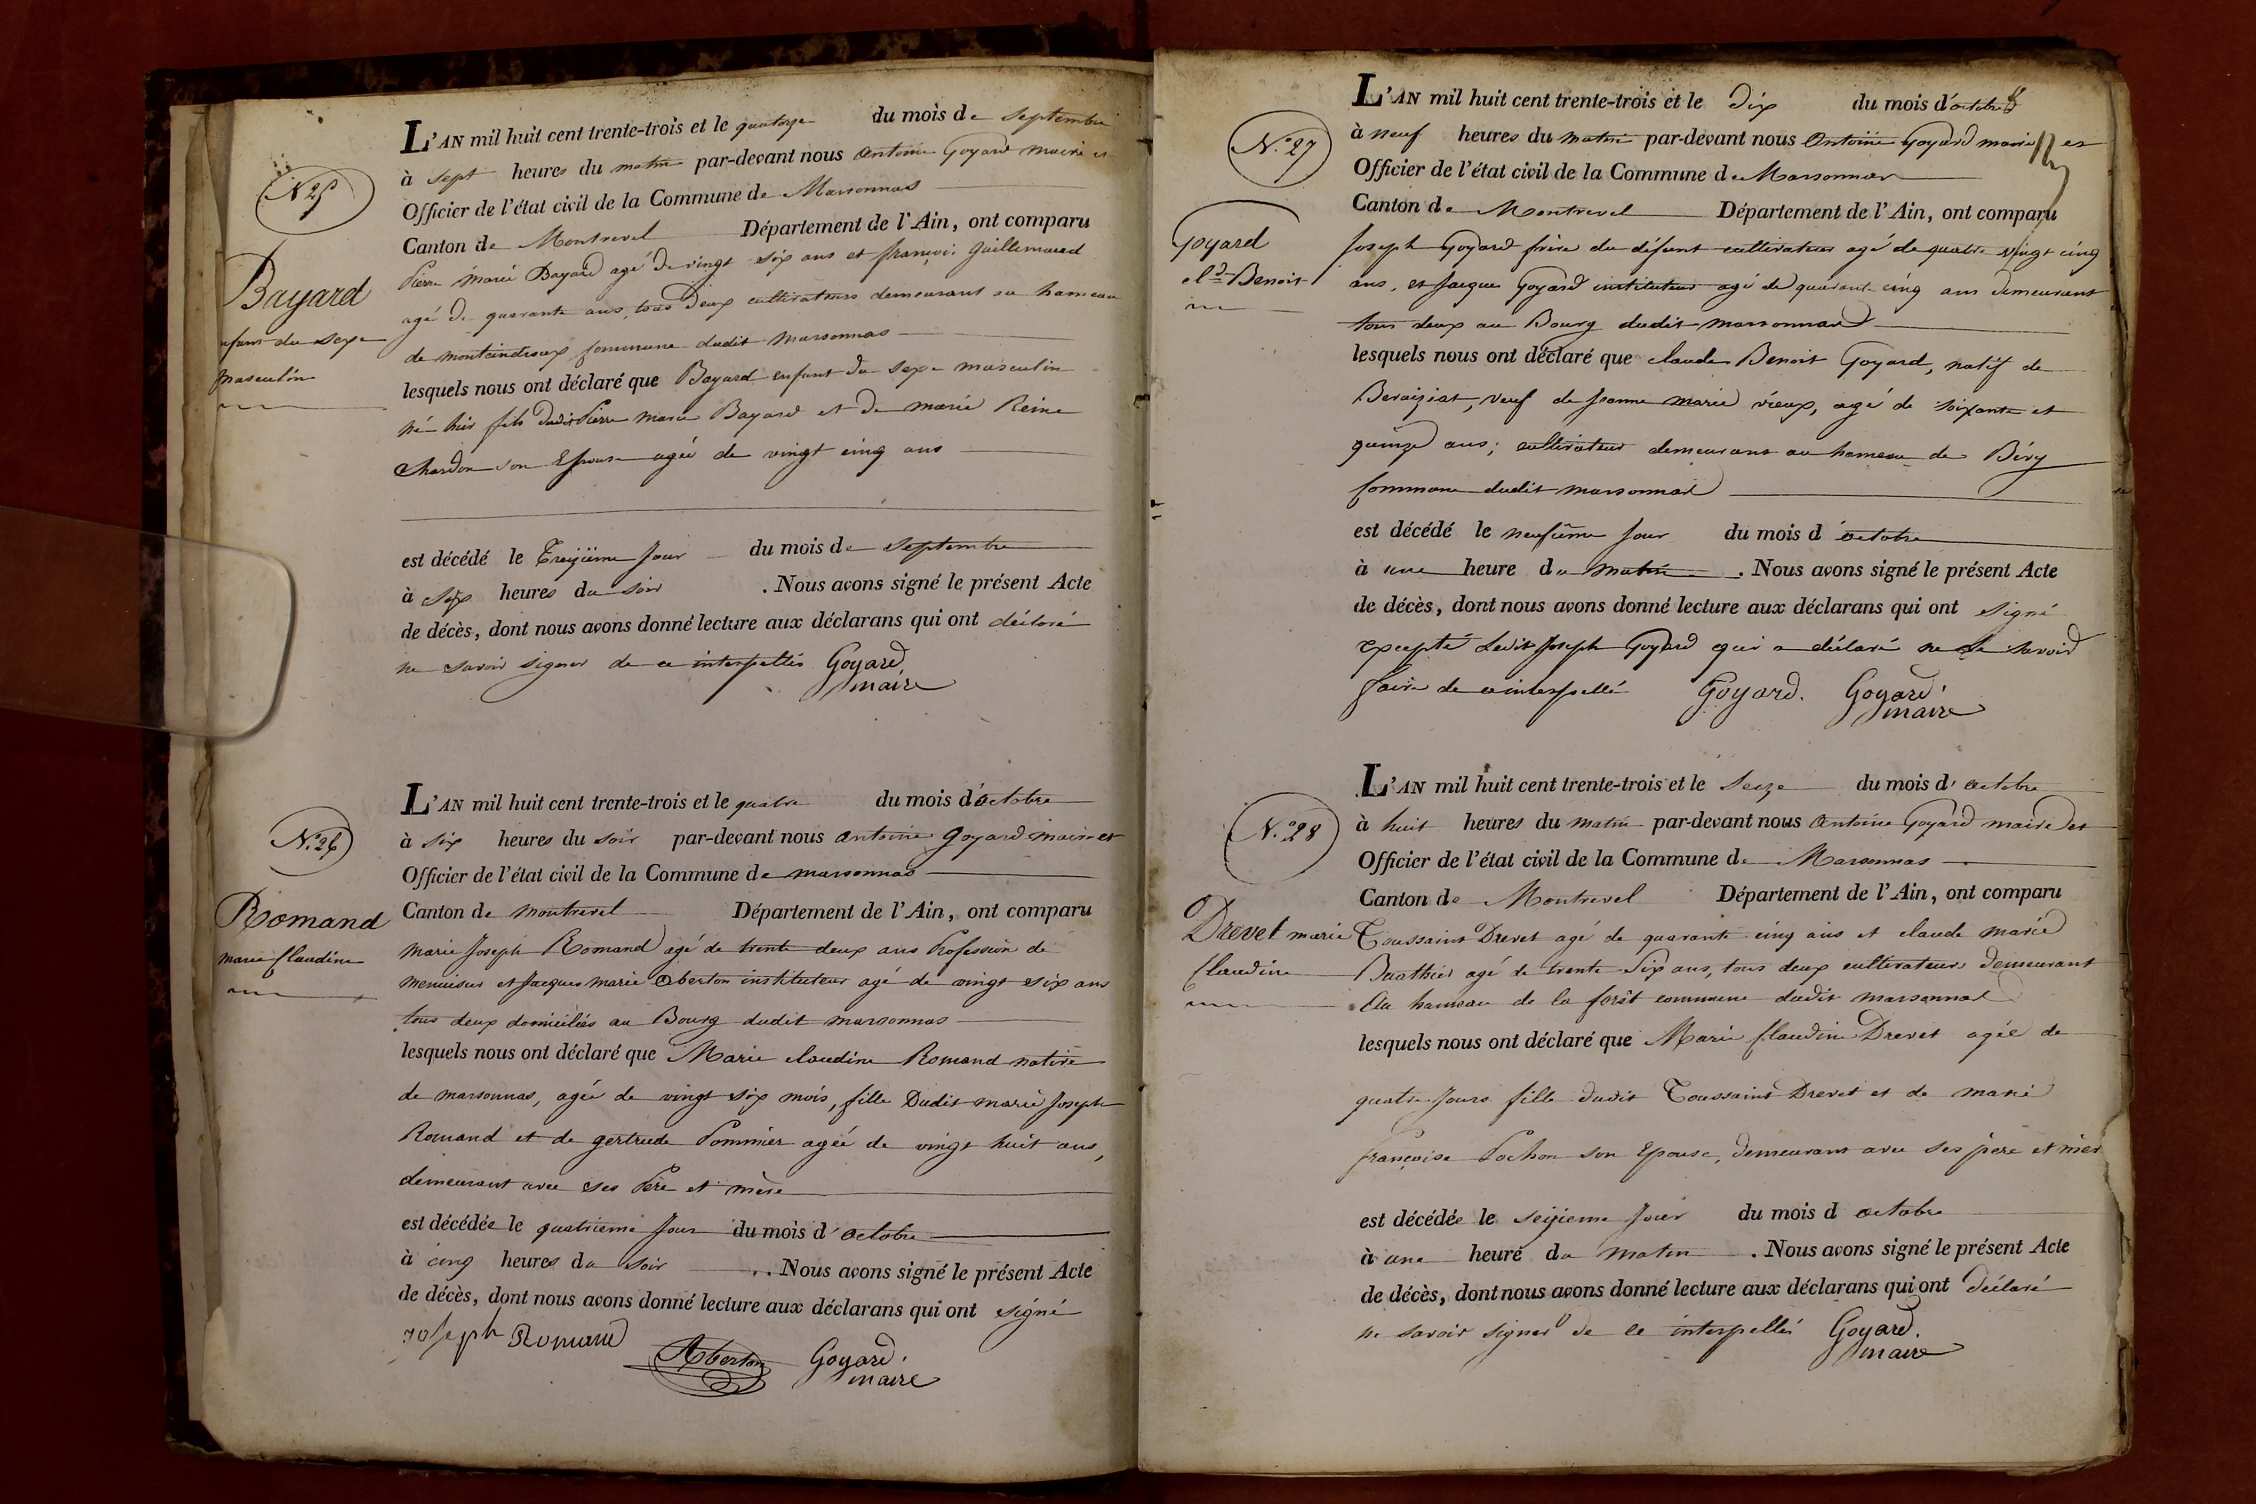 N°25
Bayard
enfant du sexe
masculin
L'AN mil huit cent trente-trois et le quatorze du mois de septembre
à sept heures du matin par-devant nous antoine Goyard maire et
Officier de l'état civil de la Commune de Marsonnas
Canton de Montrevel Département de l'Ain, ont comparu
Pierre Marie Bayard agé de vingt six ans et françois Guillemaud
agé de quarante ans, tous deux cultivateurs demeurant au hameau
de commune dudit marsonnas
lesquels nous ont déclaré que Bayard enfant du sexe masculin
né hier fils dudit Pierre marie Bayard et de marie Reine
Chardon son Epouse agée de vingt cinq ans
est décédé le Treizième Jour du mois de septembre
à six heures du soir . Nous avons signé le présent Acte
de décès, dont nous avons donné lecture aux déclarans qui ont déclaré
ne savoir signer de ce interpellés Goyard
maire
N.°26
Romand
marie Claudine
L'AN mil huit cent trente-trois et le quatre du mois d'octobre
à six heures du soir par-devant nous antoine Goyard maire et
Officier de l'état civil de la Commune de marsonnas
Canton de montrevel Département de l'Ain, ont comparu
marie Joseph Romand agé de trente deux ans Profession de
menuisier et Jacques marie Oberton instituteur agé de vingt six ans
tous deux domiciliés au Bourg dudit marsonnas
lesquels nous ont déclaré que Marie claudine Romand native
de marsonnas, agée de vingt six mois, fille Dudit marie Joseph
Romand et de gertrude Pommier agée de vingt huit ans,
demeurant avec ses Père et mère
est décédée le quatrieme Jour du mois d'octobre
à cinq heures du soir . Nous avons signé le présent Acte
de décès, dont nous avons donné lecture aux déclarans qui ont signé
joseph Romand
Oberton Goyard.
maire
N.°27
Goyard
Cl.de Benoit
L'AN mil huit cent trente-trois et le dix du mois d'octobre
à neuf heures du matin par-devant nous Antoine Goyard maire et
Officier de l'état civil de la Commune de Marsonnas
Canton de Montrevel Département de l'Ain, ont comparu
Joseph Goyard frère du défunt cultivateur agé de quatre vingt cinq
ans, et Jacque Goyard instituteur agé de quarante cinq ans demeurant
tous deux au Bourg dudit marsonnas
lesquels nous ont déclaré que claude Benoit Goyard, natif de
Beraiziat, veuf de Jeanne marie vieux, agé de soixante et
quinze ans; cultivateur demeurant au hameau de Béry
Commune dudit marsonnas
est décédé le neufième Jour du mois d'octobre
à une heure du matin . Nous avons signé le présent Acte
de décès, dont nous avons donné lecture aux déclarans qui ont signé
excepté ledit Joseph Goyard qui a déclaré ne le savoir
faire de ce interpellé Goyard. Goyard.
maire
N.°28
Drevet marie
Claudine
L'AN mil huit cent trente-trois et le seize du mois d'octobre
à huit heures du matin par-devant nous Antoine Goyard maire et
Officier de l'état civil de la Commune de Marsonnas
Canton de Montrevel Département de l'Ain, ont comparu
Toussaint Drevet agé de quarante cinq ans et claude marie
Buathier agé de trente six ans, tous deux cultivateurs demeurant
au hameau de la forêt commune dudit marsonnas
lesquels nous ont déclaré que Marie Claudine Drevet agée de
quatre Jours fille dudit Toussaint Drevet et de marie
françoise Pochon son Epouse, demeurant avec ses père et mère
est décédée le seizieme Jour du mois d octobre
à une heure du matin . Nous avons signé le présent Acte
de décès, dont nous avons donné lecture aux déclarans qui ont déclaré
ne savoir signer de ce interpellés Goyard.
maire